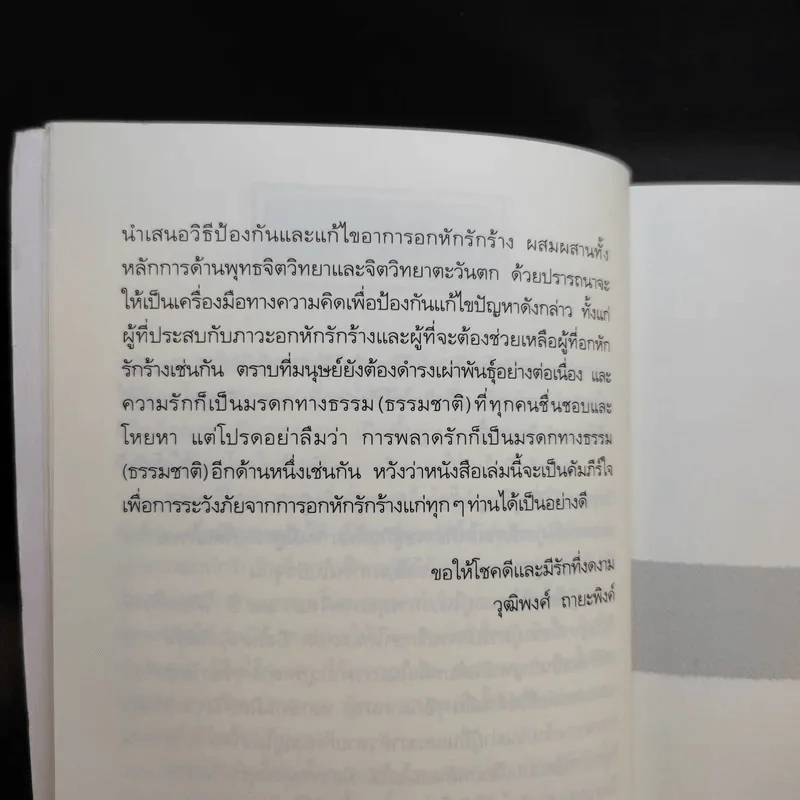 นำเสนอวิธีป้องกันและแก้ไขอาการอกหักรักร้าง ผสมผสานทั้ง
หลักการด้านพุทธจิตวิทยาและจิตวิทยาตะวันตก ด้วยปรารถนาจะ
ให้เป็นเครื่องมือทางความคิดเพื่อป้องกันแก้ไขปัญหาดังกล่าว ทั้งแก่
ผู้ที่ประสบกับภาวะอกหักรักร้างและผู้ที่จะต้องช่วยเหลือผู้ที่อกหัก
รักร้างเช่นกัน ตราบที่มนุษย์ยังต้องดำรงเผ่าพันธุ์อย่างต่อเนื่อง และ
ความรักก็เป็นมรดกทางธรรม (ธรรมชาติ) ที่ทุกคนชื่นชอบและ
โหยหา แต่โปรดอย่าลืมว่า การพลาดรักก็เป็นมรดกทางธรรม
(ธรรมชาติ) อีกด้านหนึ่งเช่นกัน หวังว่าหนังสือเล่มนี้จะเป็นคัมภีร์ใจ
เพื่อการระวังภัยจากการอกหักรักร้างแก่ทุก ๆ ท่านได้เป็นอย่างดี
ขอให้โชคดีและมีรักที่งดงาม
วุฒิพงศ์ ถายะพิงค์